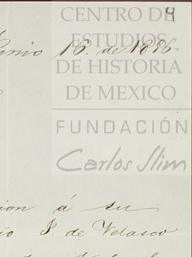 4
CENTRO DE
ESTUDIOS
DE HISTORIA
DE MEXICO
FUNDACIÓN
Carlos Slim
Junio 16 de 1886
ion á su
io J. de Velasco